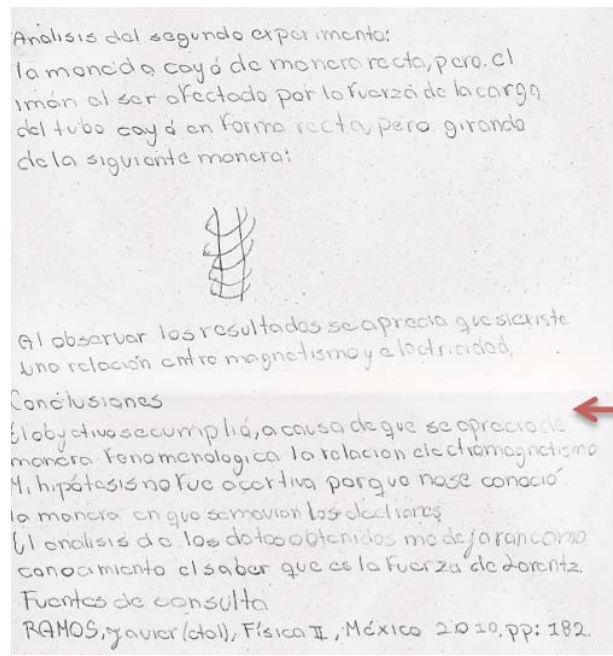 Análisis del segundo experimento:
la moneda cayó de manera recta, pero el
imán al ser afectado por la fuerza de la carga
del tubo cayó en forma recta, pero girando
de la siguiente manera:
Al observar los resultados se aprecia que si existe
una relación entre magnetismo y electricidad.
Conclusiones
El objetivo se cumplió, a causa de que se aprecio de
manera fenomenologica la relacion electromagnetismo
Mi hipótesis no fue acertiva porque no se conoció
la manera en que se movian los electrones
El analisis de los datos obtenidos me dejaran como
conocimiento el saber que es la fuerza de Lorentz.
Fuentes de consulta
RAMOS, Javier (etal), Física II, México 2010. pp: 182.